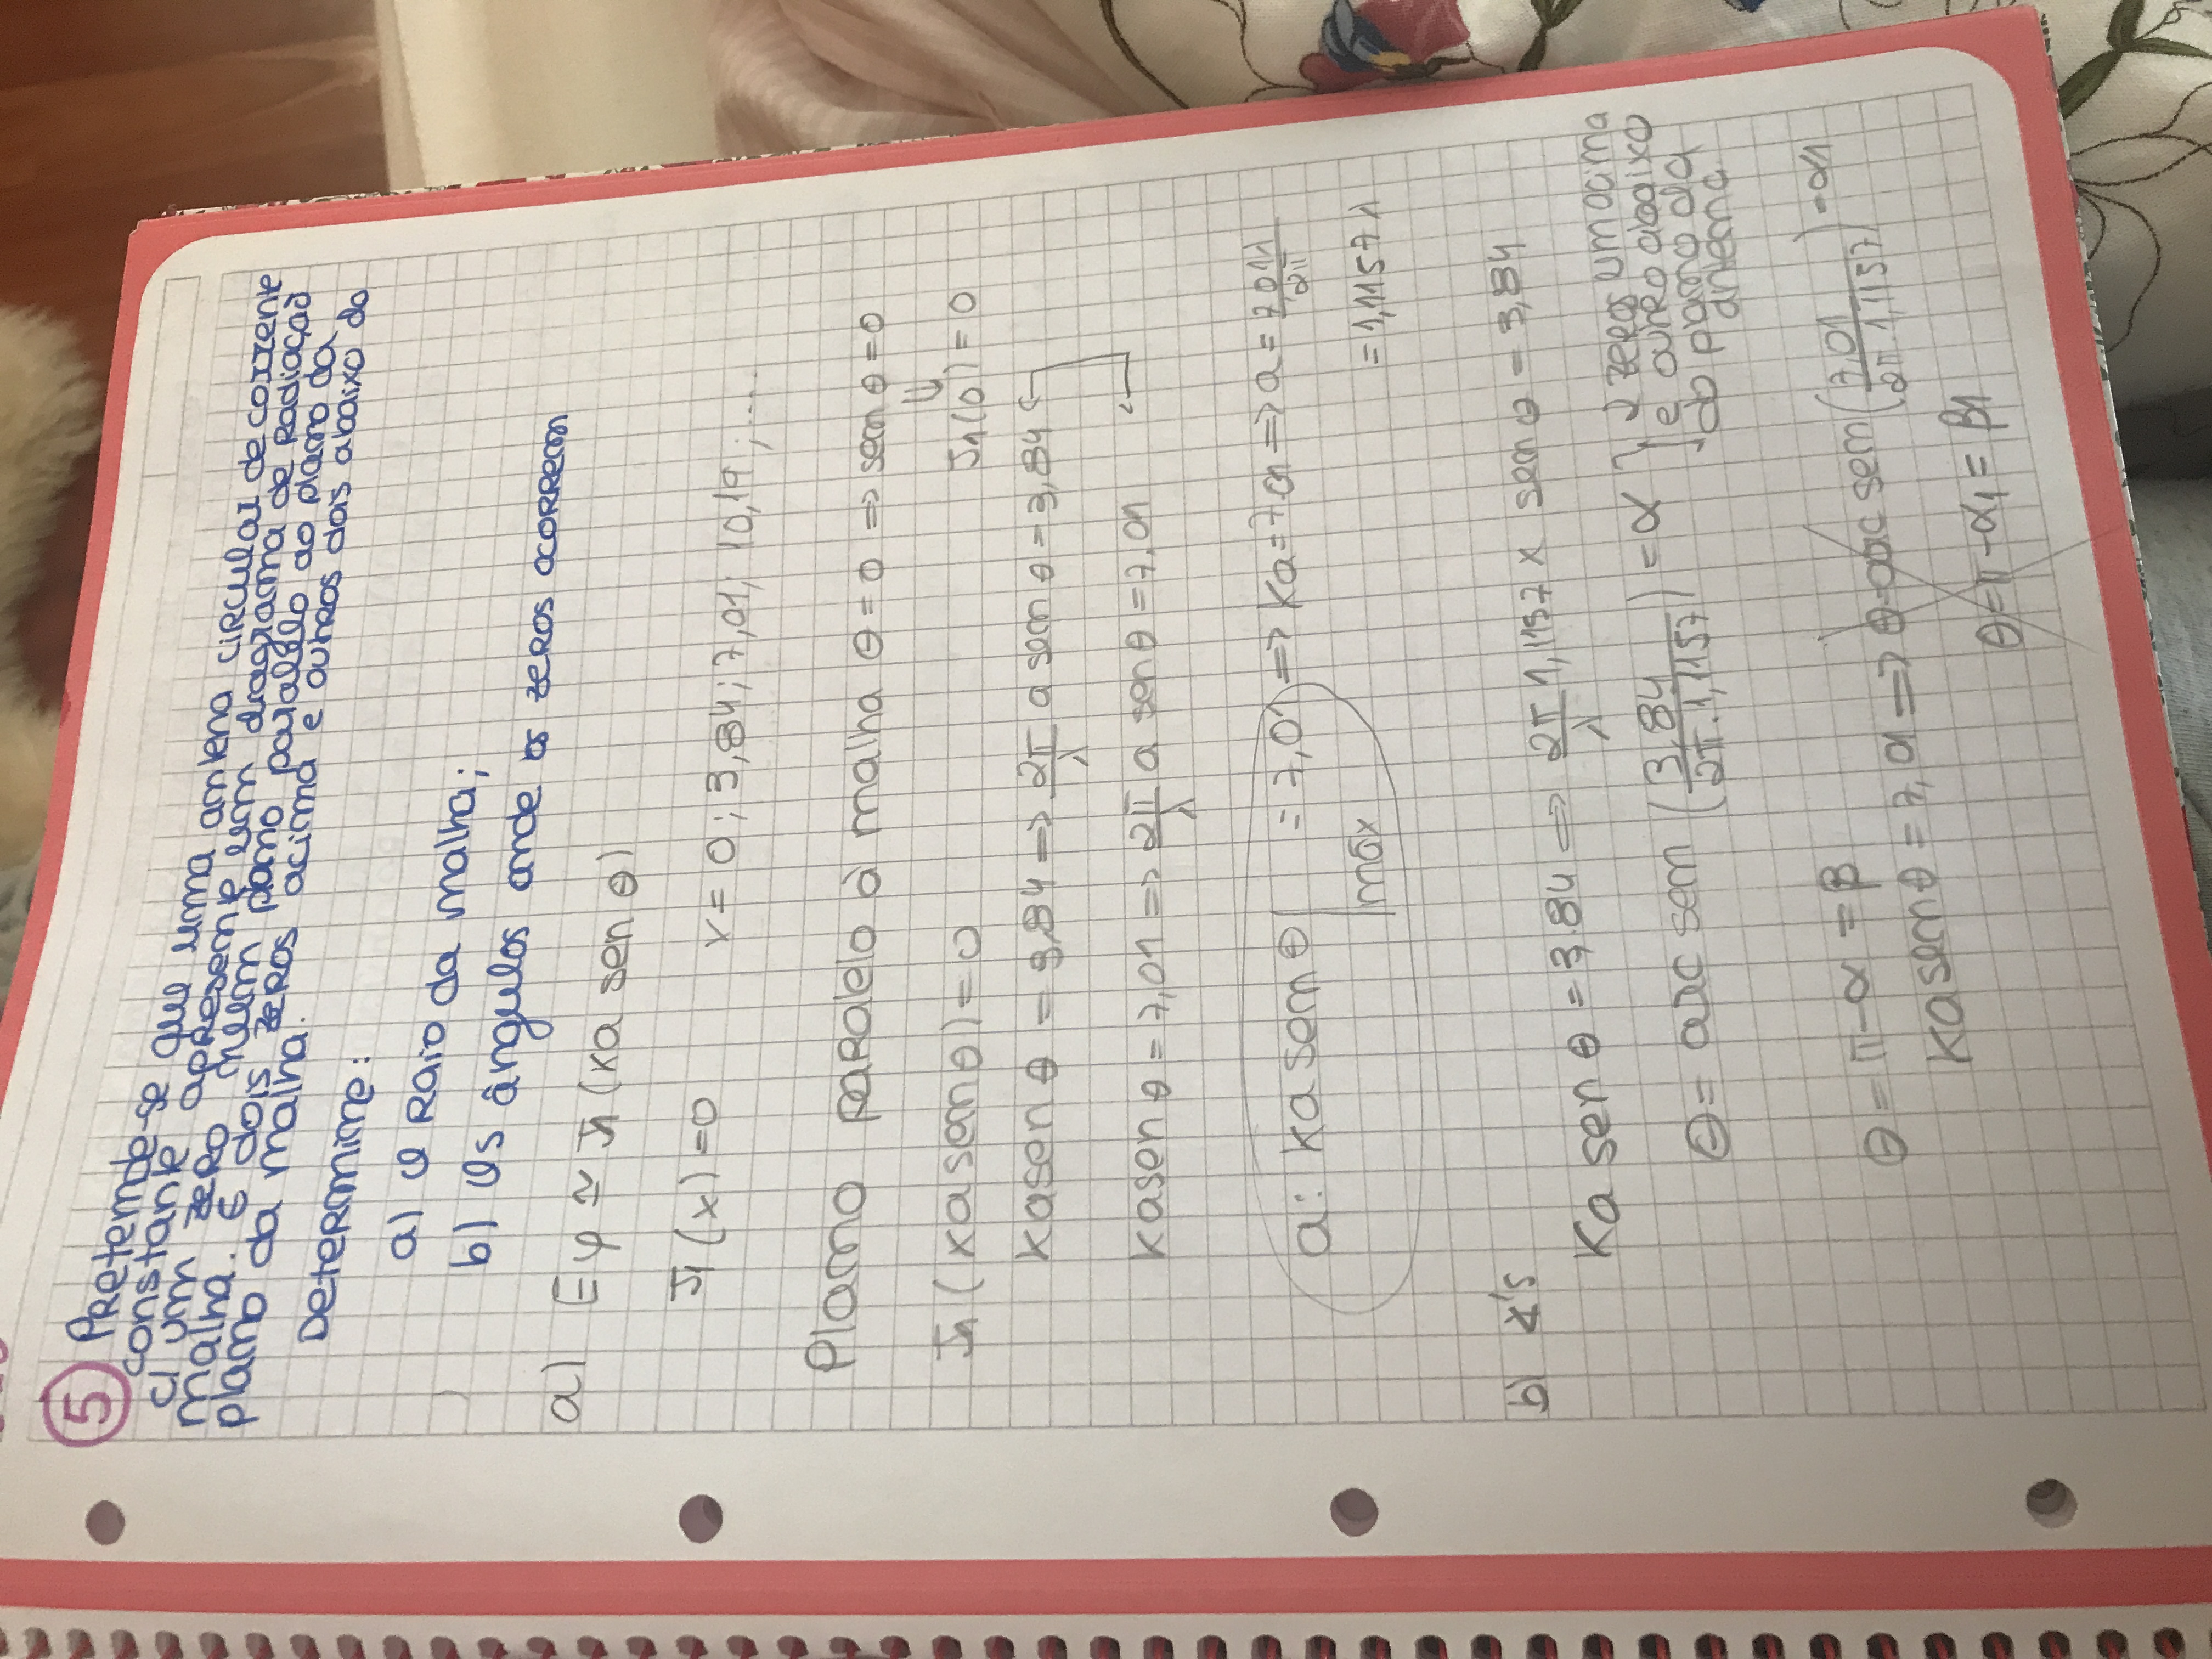 5 Pretende-se que uma antena circular de corrente
constante apresente um diagrama de radiação
c/ um zero num plano paralelo ao plano da
malha. E dois zeros acima e outros dois abaixo do
plano da malha.
Determine:
a) O Raio da malha;
b) Os ângulos onde os zeros ocorrem
a) Eφ ≃ J1 (ka sen θ)
J1 (x) = 0 x = 0; 3,84; 7,01; 10,19; ....
Plano paralelo à malha θ = 0 => sen θ = 0
⇓
J1 (ka sen θ) = 0 J1(0) = 0
ka sen θ = 3,84 => 2π/λ a sen θ = 3,84
ka sen θ = 7,01 => 2π/λ a sen θ = 7,01
a: ka sen θ |máx = 7,01 => ka = 7,01 => a = 7,01λ/2π
= 1,1157 λ
b) x's
Ka sen θ = 3,84 => 2π/λ 1,1157 x sen θ = 3,84
θ = arc sen (3,84/2π.1,1157) = α } 2 zeros um acima
e outro abaixo
do plano da
antena
θ = π - α = β
ka sen θ = 7,01 => θ = arc sen (7,01/2π.1,1157) = α1
θ = π - α1 = β1